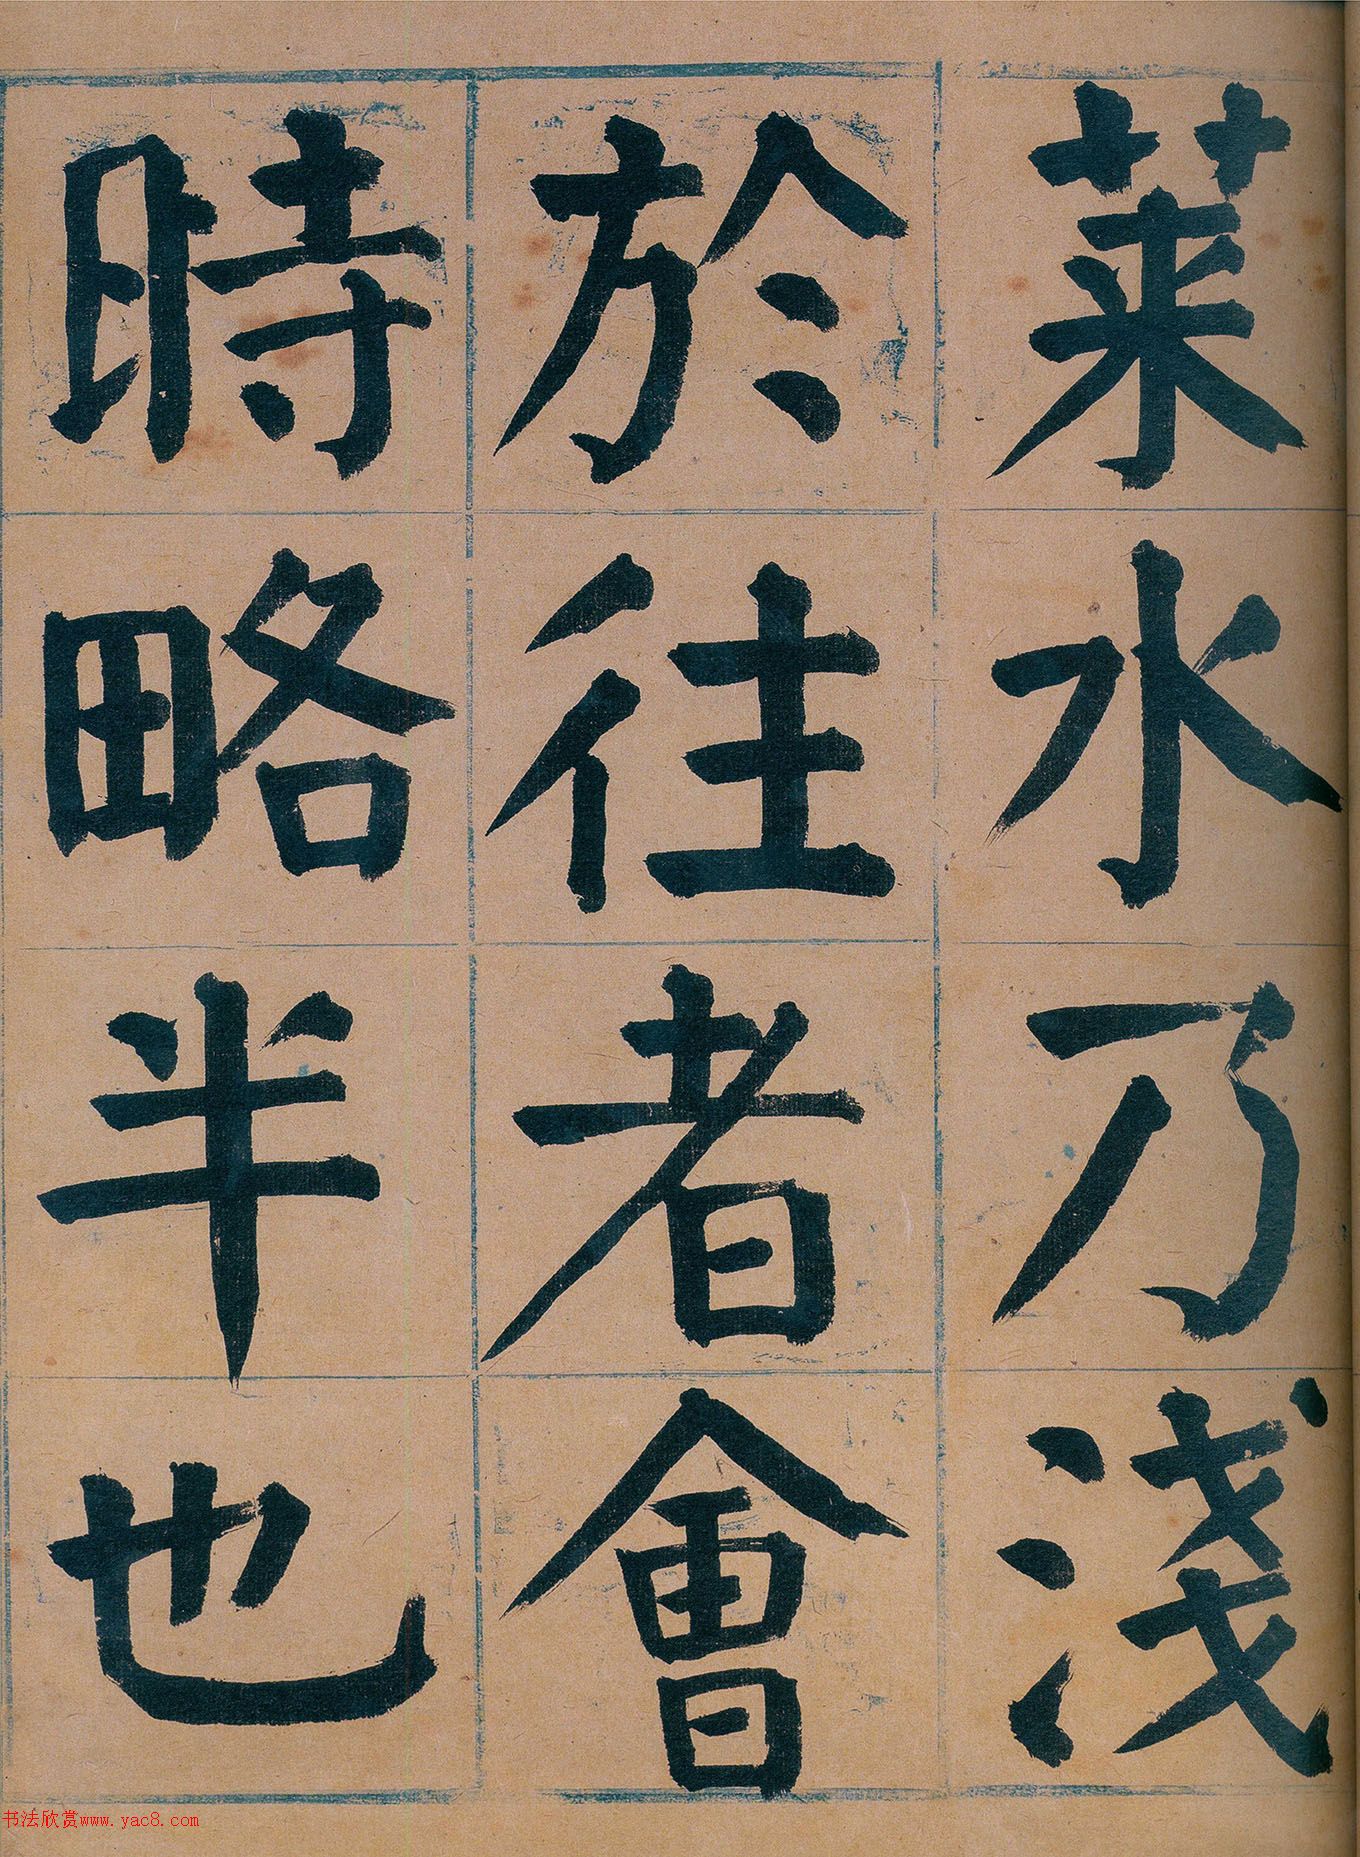 莱水乃淺
於往者會
時略半也
书法欣赏www.yac8.com